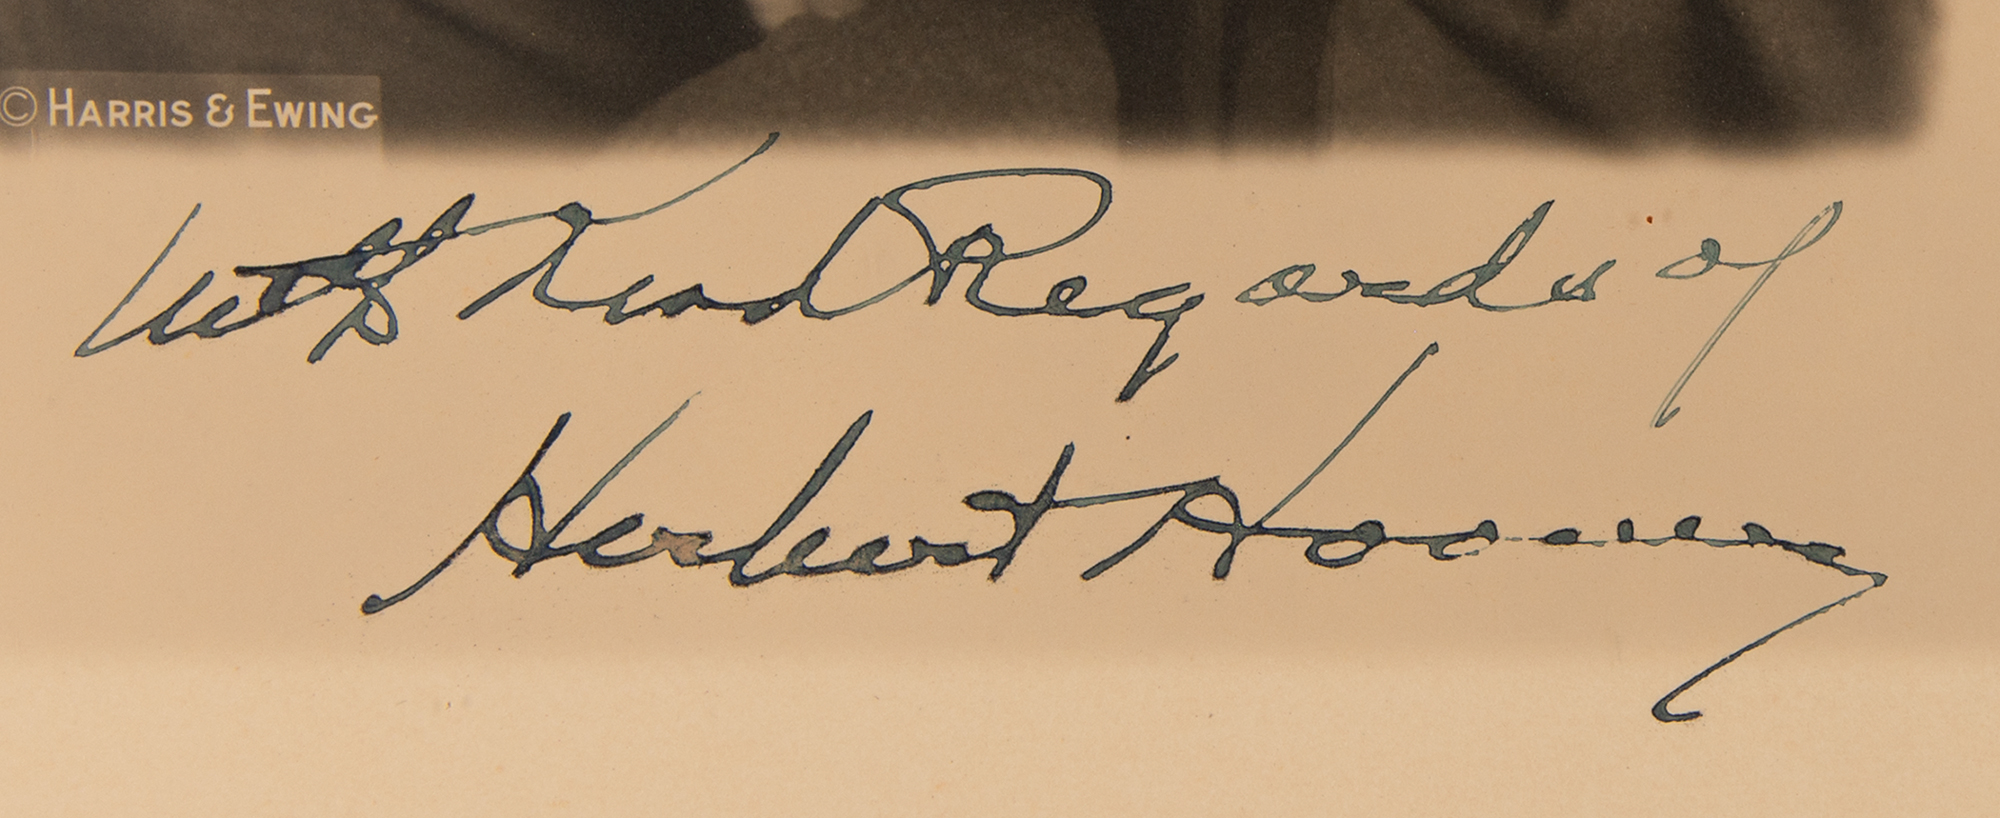 © HARRIS & EWING
With Kind Regards of
Herbert Hoover